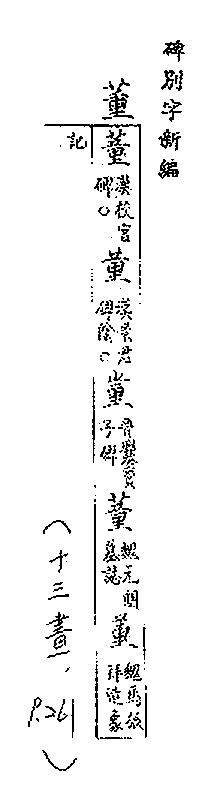 碑別字新編
董
董 漢校官碑。
董 漢景君碑陰。
董 晉爨寶子碑
董 魏元
墓誌
董 魏馬振拜造象
記
(十三畫，P.261)